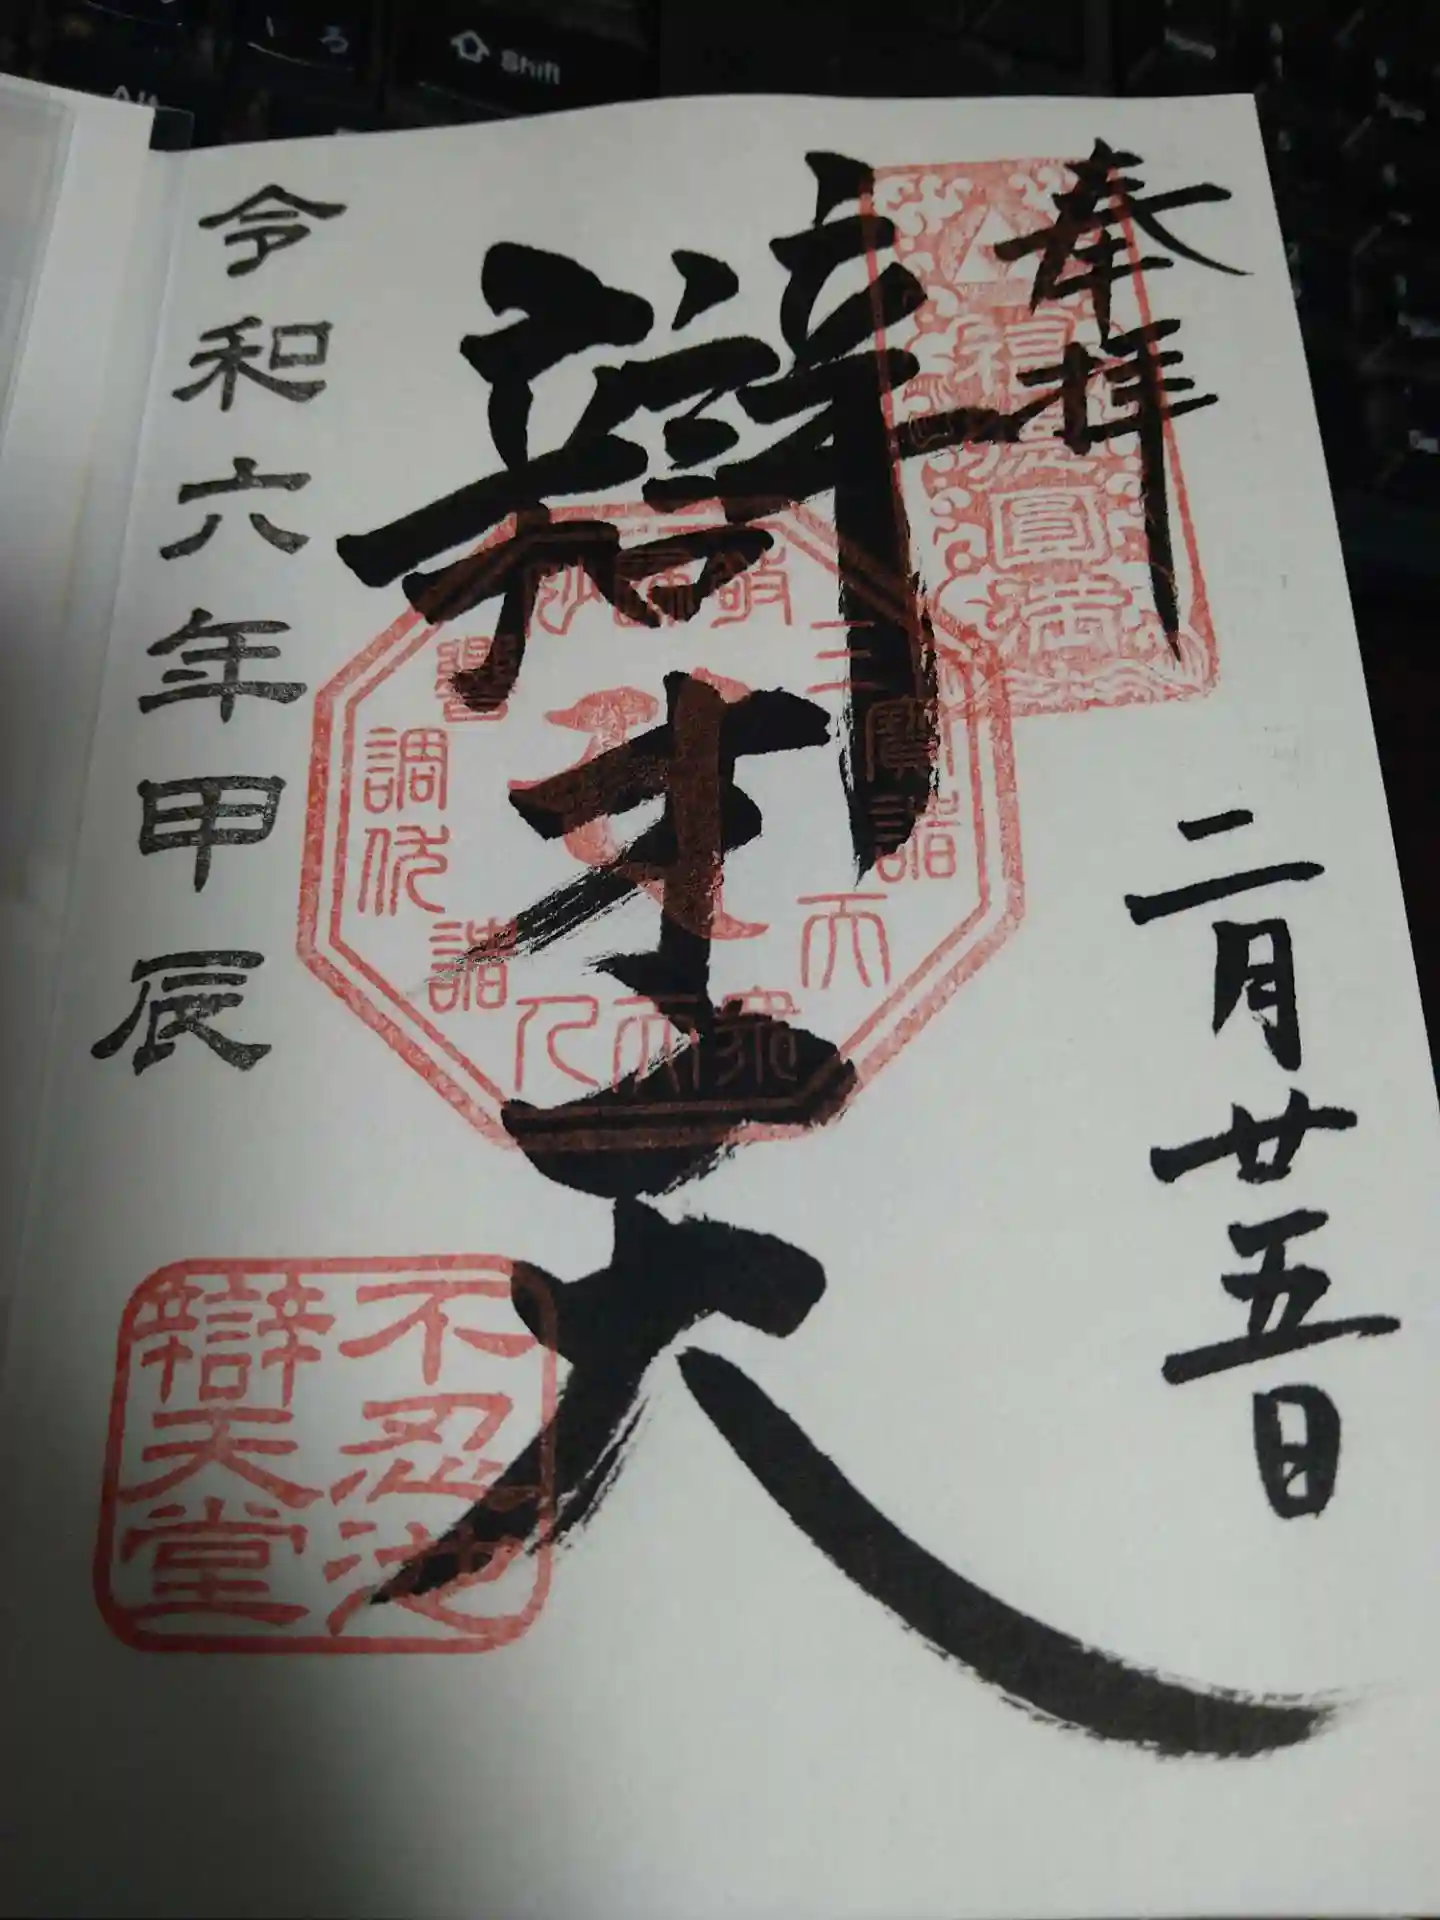 奉拝
二月廿五日
辯才天
令和六年甲辰
福徳圓満
不忍池
辯天堂
Shift
Alt
ろ